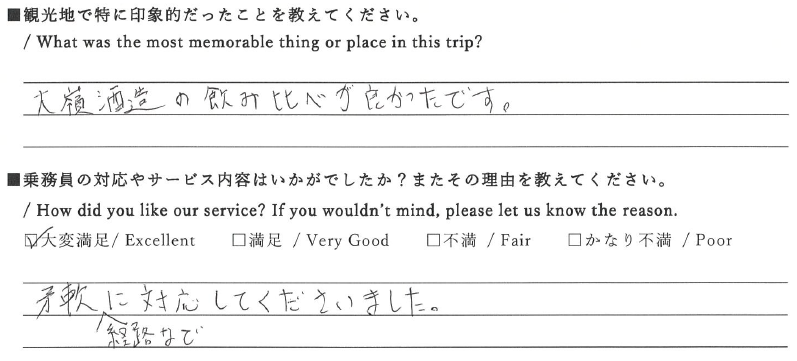 ■観光地で特に印象的だったことを教えてください。
/ What was the most memorable thing or place in this trip?
大嶺酒造の飲み比べが良かったです。
■乗務員の対応やサービス内容はいかがでしたか?またその理由を教えてください。
/ How did you like our service? If you wouldn't mind, please let us know the reason.
☑大変満足/ Excellent □満足 / Very Good □不満 / Fair □かなり不満 / Poor
柔軟に対応してくださいました。
経路など